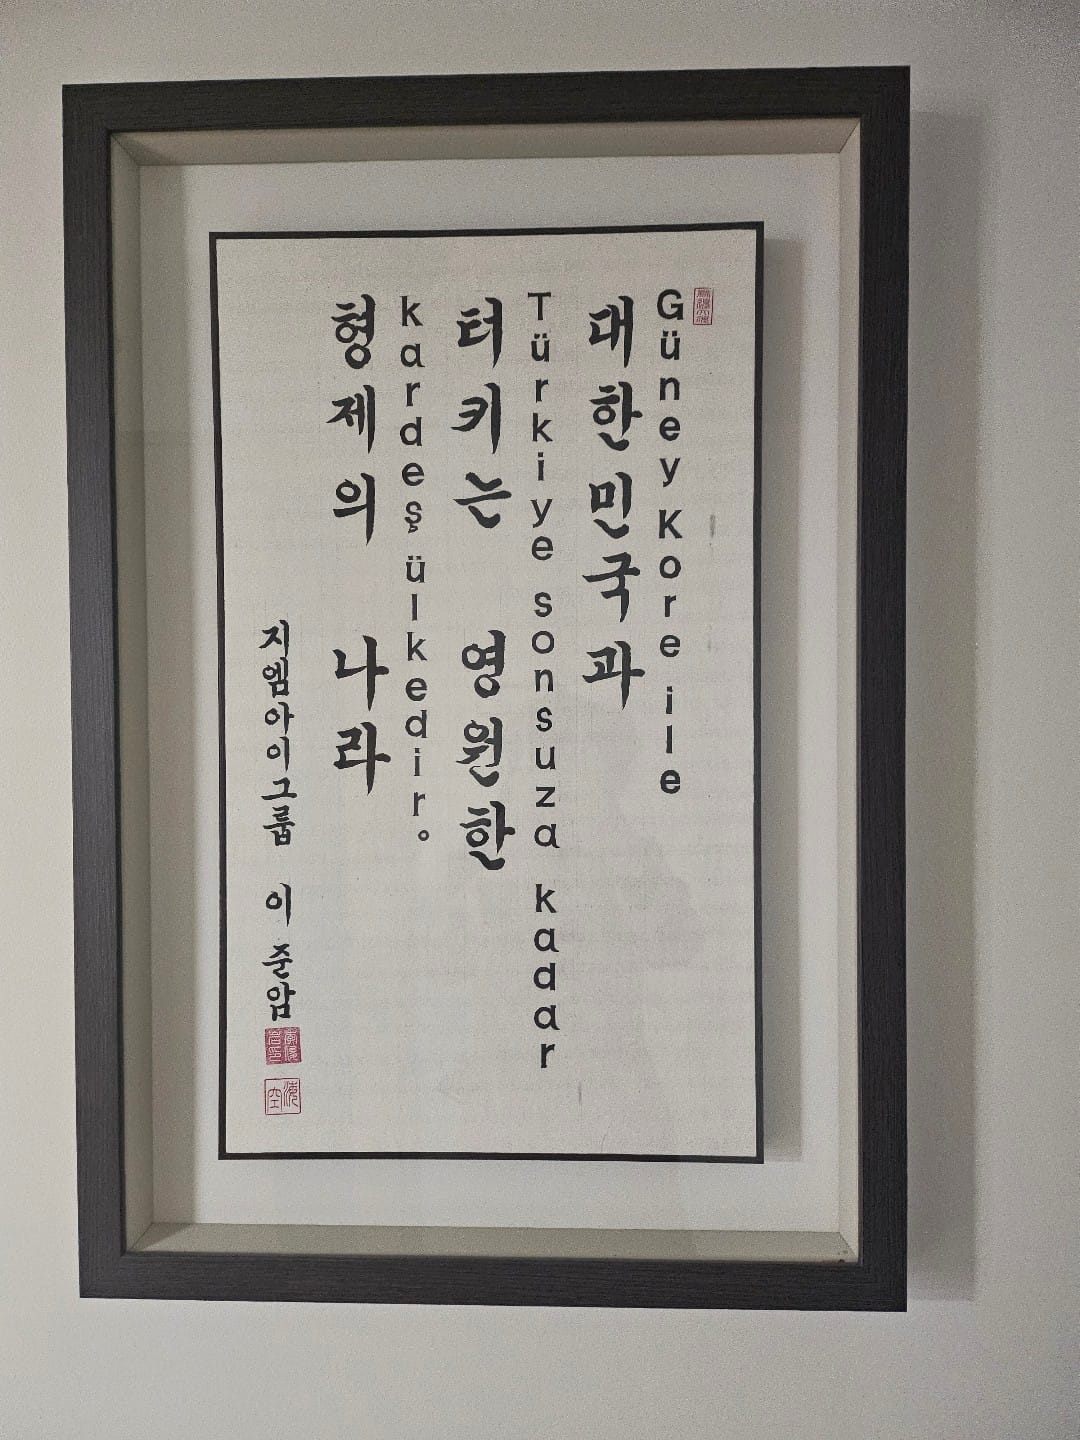 Güney Kore ile
대한민국과
Türkiye sonsuza kadar
터키는 영원한
kardeş ülkedir。
형제의 나라
지엠아이그룹 이준암